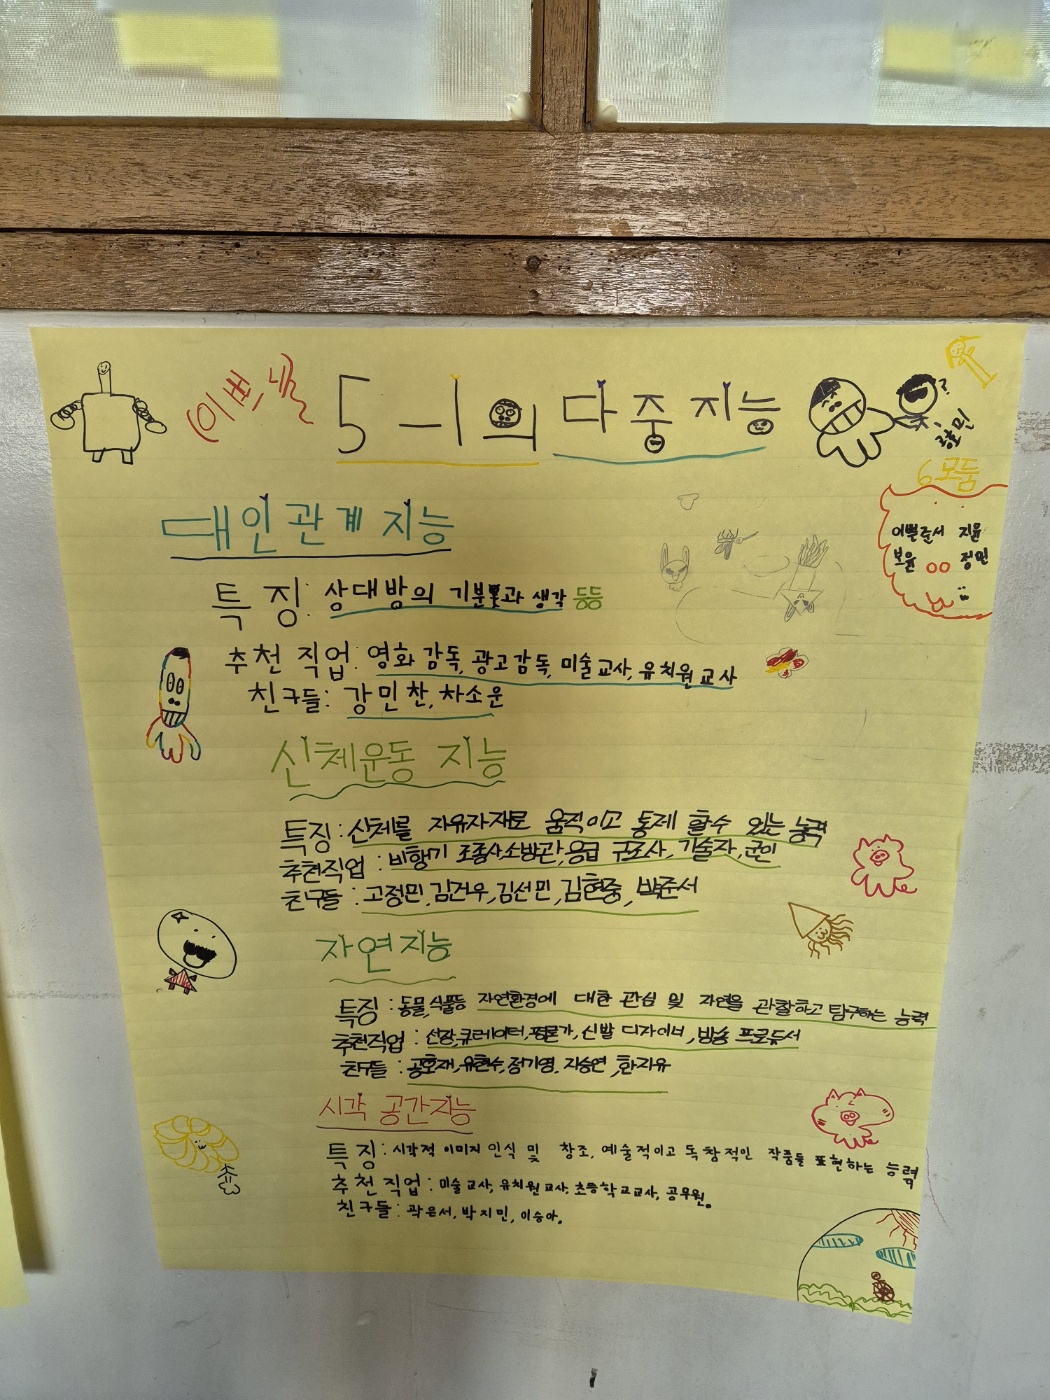 이쁘늘
5-1의 다중지능
6모둠
이쁜준서 지윤
보윤 정민
대인관계 지능
특징: 상대방의 기분과 생각 등등
추천 직업: 영화 감독, 광고감독, 미술교사, 유치원교사
친구들: 강민찬, 차소운
신체운동 지능
특징: 신체를 자유자재로 움직이고 통제 할수 있는 능력
추천직업: 비행기 조종사, 소방관, 응급 구조사, 기술자, 군인
친구들: 고정민, 김건우, 김선민, 김현중, 박준서
자연지능
특징: 동물, 식물등 자연환경에 대한 관심 및 자연을 관찰하고 탐구하는 능력
추천직업: 선장, 큐레이터, 평론가, 신발 디자이너, 방송 프로듀서
친구들: 공호재, 유현수, 정기영, 지승연, 한지유
시각 공간지능
특징: 시각적 이미지 인식 및 창조, 예술적이고 독창적인 작품들 표현하는 능력
추천 직업: 미술교사, 유치원교사, 초등학교교사, 공무원.
친구들: 곽은서, 박지민, 이승아.